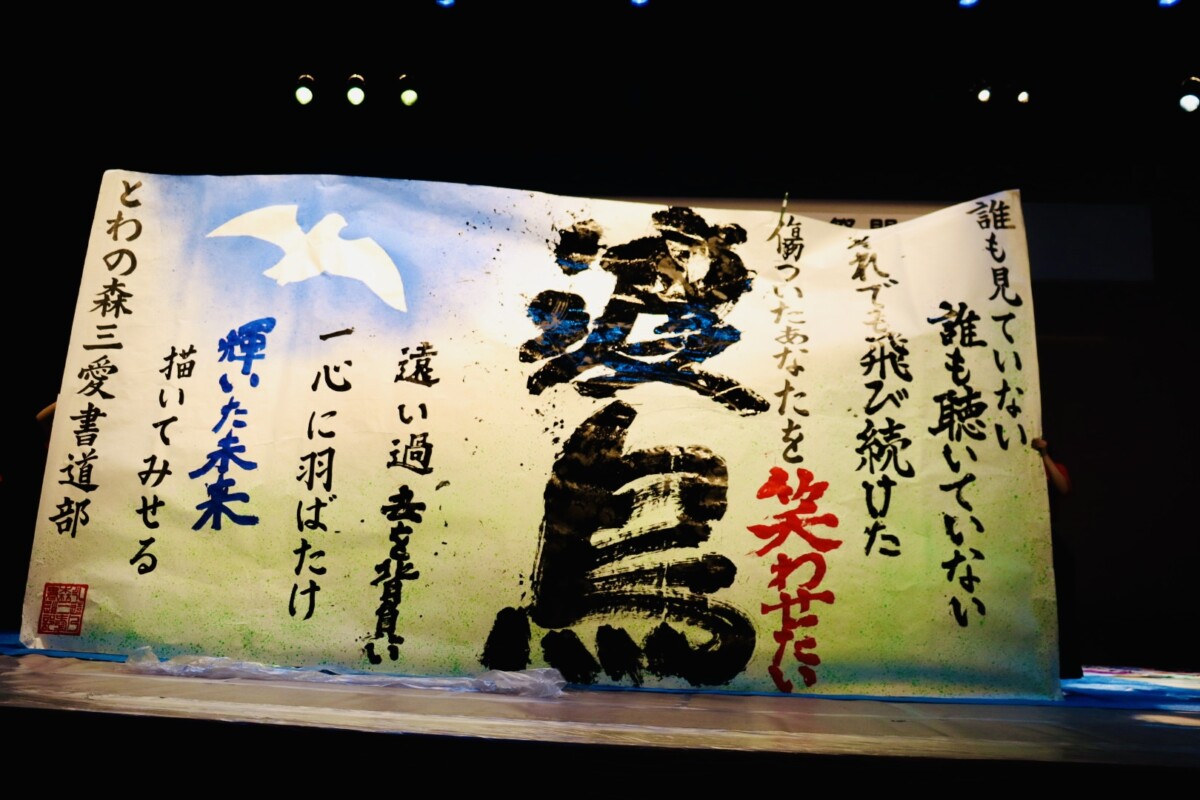 誰も見ていない
誰も聴いていない
それでも飛び続けた
傷ついたあなたを
笑わせたい
渡鳥
遠い過去を背負い
一心に羽ばたけ
輝いた未来
描いてみせる
とわの森三愛書道部